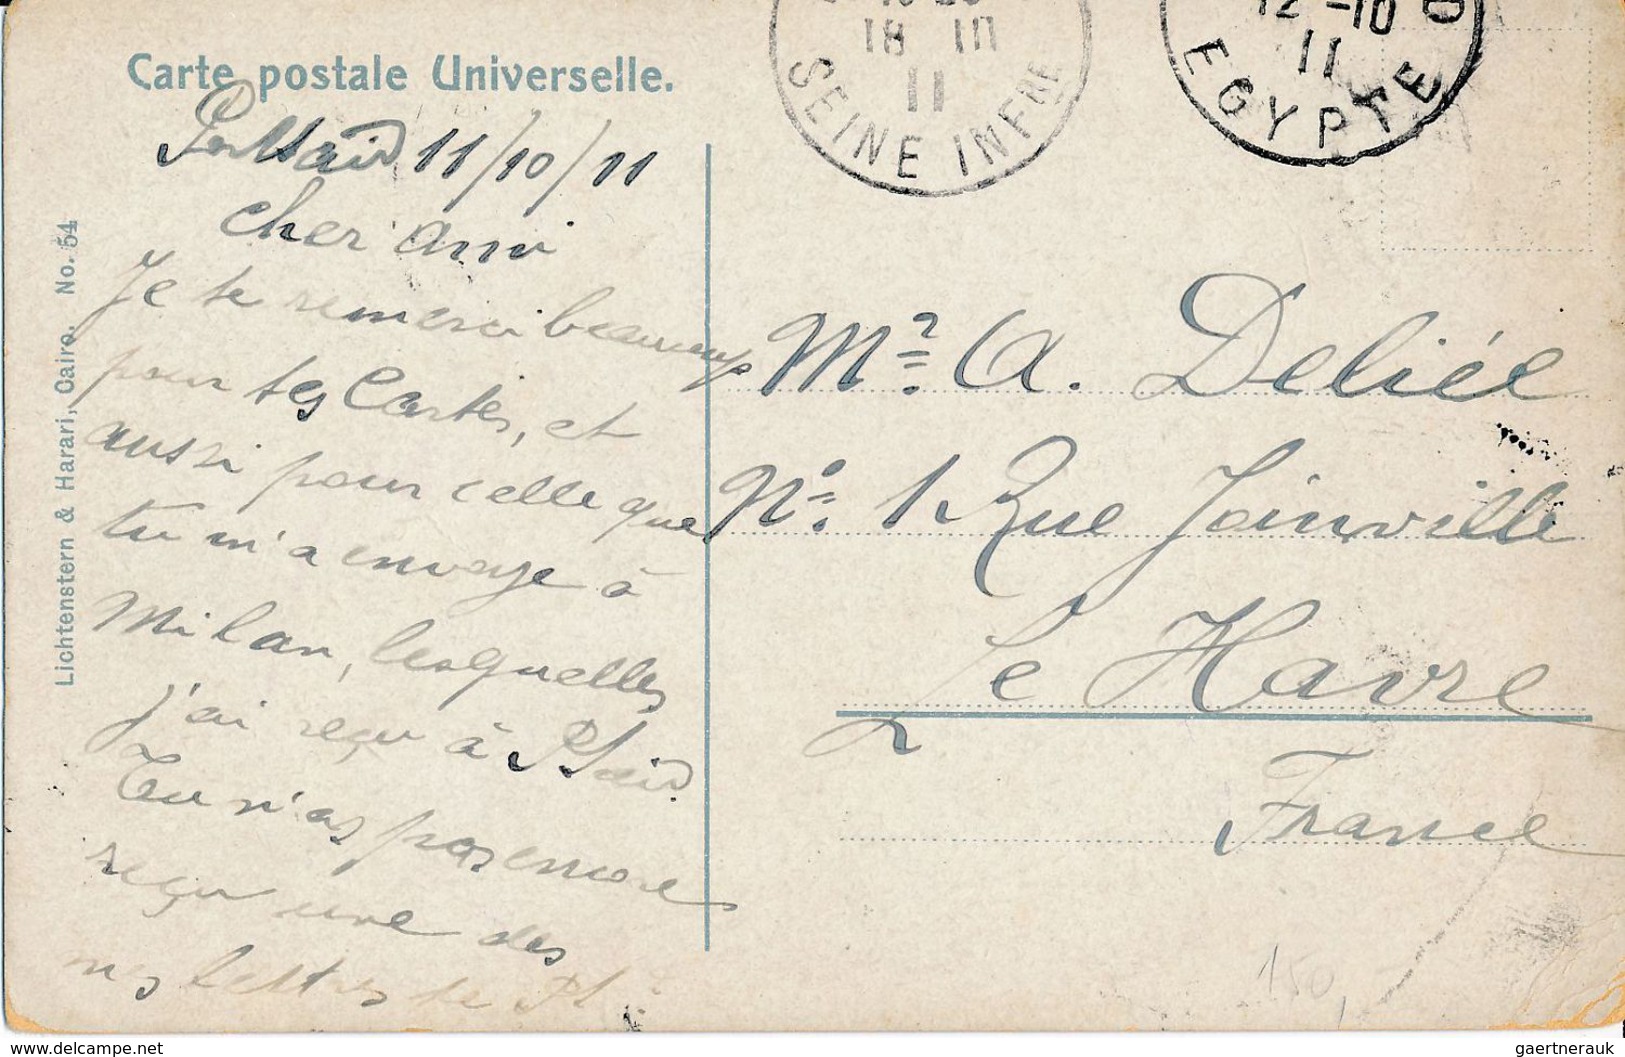 Carte postale Universelle.
Port Said 11/10/11
cher ami
Je te remerci beaucoup
pour tes Cartes, et
aussi pour celle que
tu m'a envoye à
Milan, lesquelles
j'ai reçu à P Said.
Tu n'as pas encore
reçu une des
mes lettres de P
Lichtenstern & Harari, Cairo. No. 54
18 10
11
SEINE INFRE
12 -10
11
EGYPTE
Mr. A. Deliée
No. 1 Rue Joinville
Le Havre
France
150
www.delcampe.net
gaertnerauk